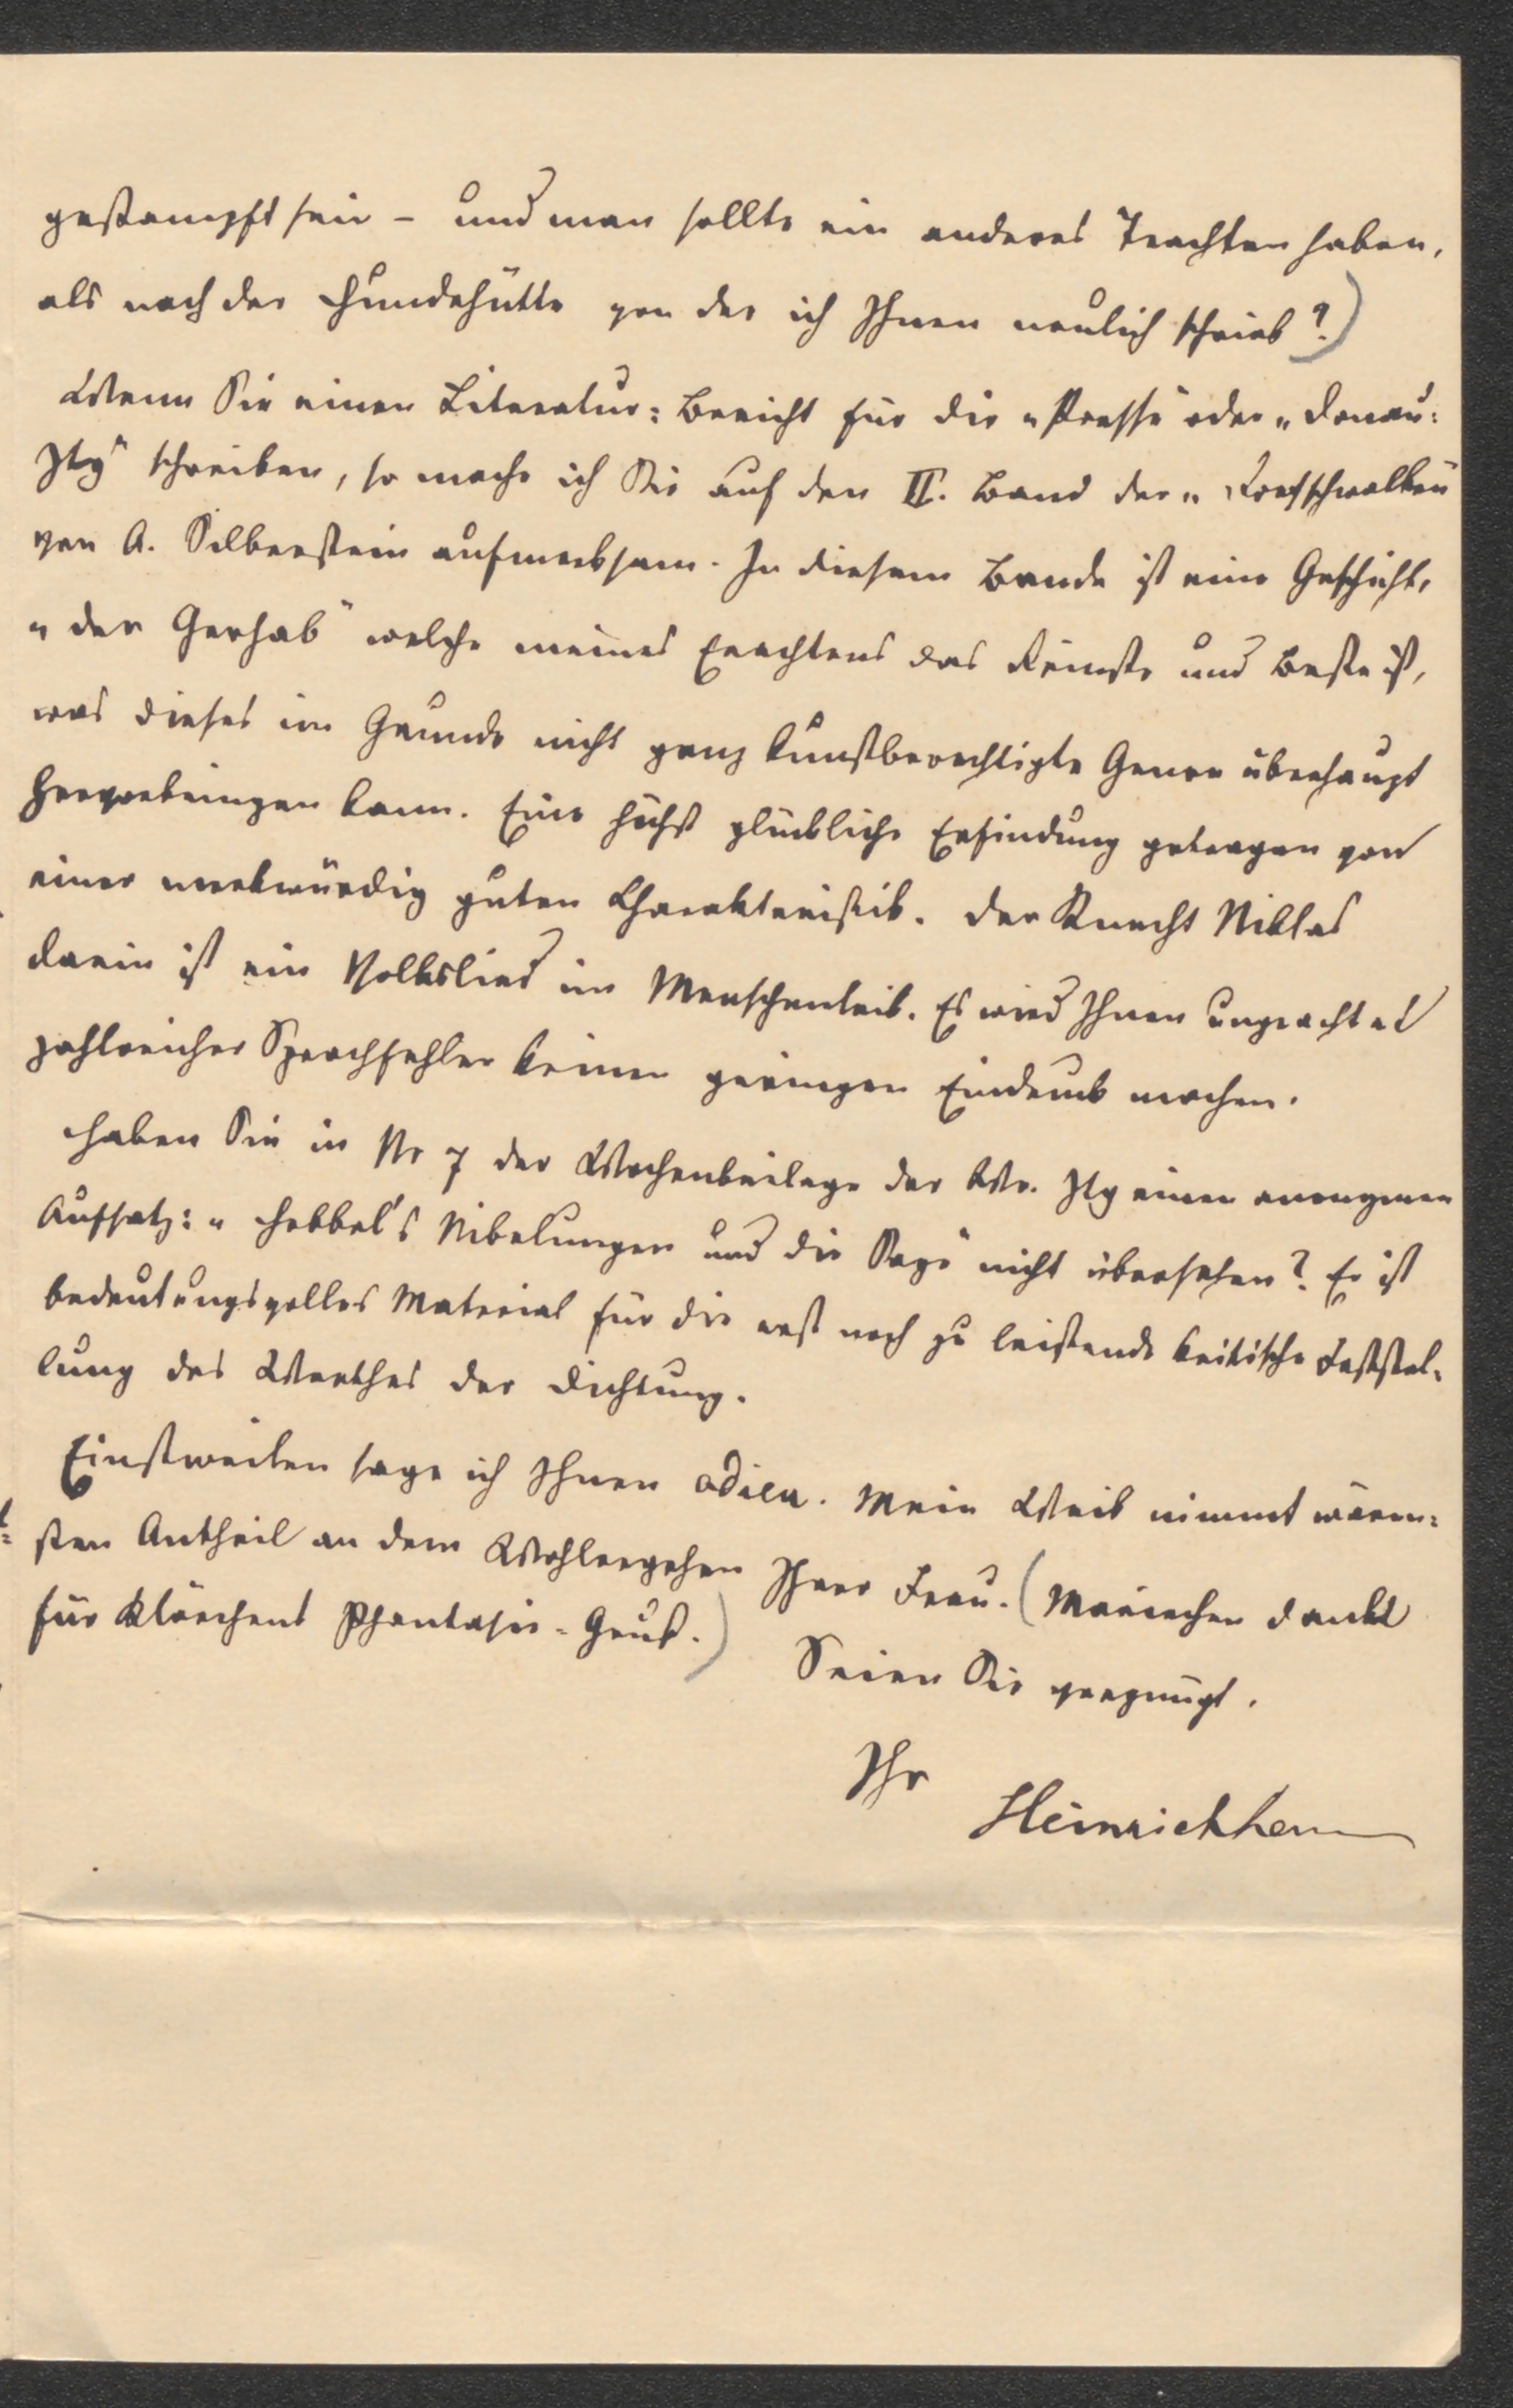 gestampft sein – und man sollte ein anderes Trachten haben,
als nach der Hundehütte von der ich Ihnen neulich schrieb?)
Wenn Sie einen Literatur-Bericht für die „Presse“ oder „Donau-
Ztg“ schreiben, so mache ich Sie auf den II. Band der „Dorfschwalben“
von A. Silberstein aufmerksam. In diesem Bande ist eine Geschichte
„der Gerhab“ welche meines Erachtens das Feinste und Beste ist,
was dieses im Grunde nicht ganz kunstberechtigte Genre überhaupt
hervorbringen kann. Eine höchst glückliche Erfindung getragen von
einer merkwürdig guten Charakteristik. Der Knecht Niklas
darin ist ein Volkslied im Menschenleib. Es wird Ihnen ungeachtet
zahlreicher Sprachfehler keinen geringen Eindruck machen.
Haben Sie in Nr 7 der Wochenbeilage der Wr. Ztg einen anonymen
Aufsatz: „Hebbel's Nibelungen und die Sage“ nicht übersehen? Er ist
bedeutungsvolles Material für die erst noch zu leistende kritische Feststel-
lung des Werthes der Dichtung.
Einstweilen sage ich Ihnen adieu. Mein Weib nimmt wärm-
sten Antheil an dem Wohlergehen Ihrer Frau. (Mariechen dankt
für Klärchens Phantasie-Gruß.)
Seien Sie vergnügt.
Ihr